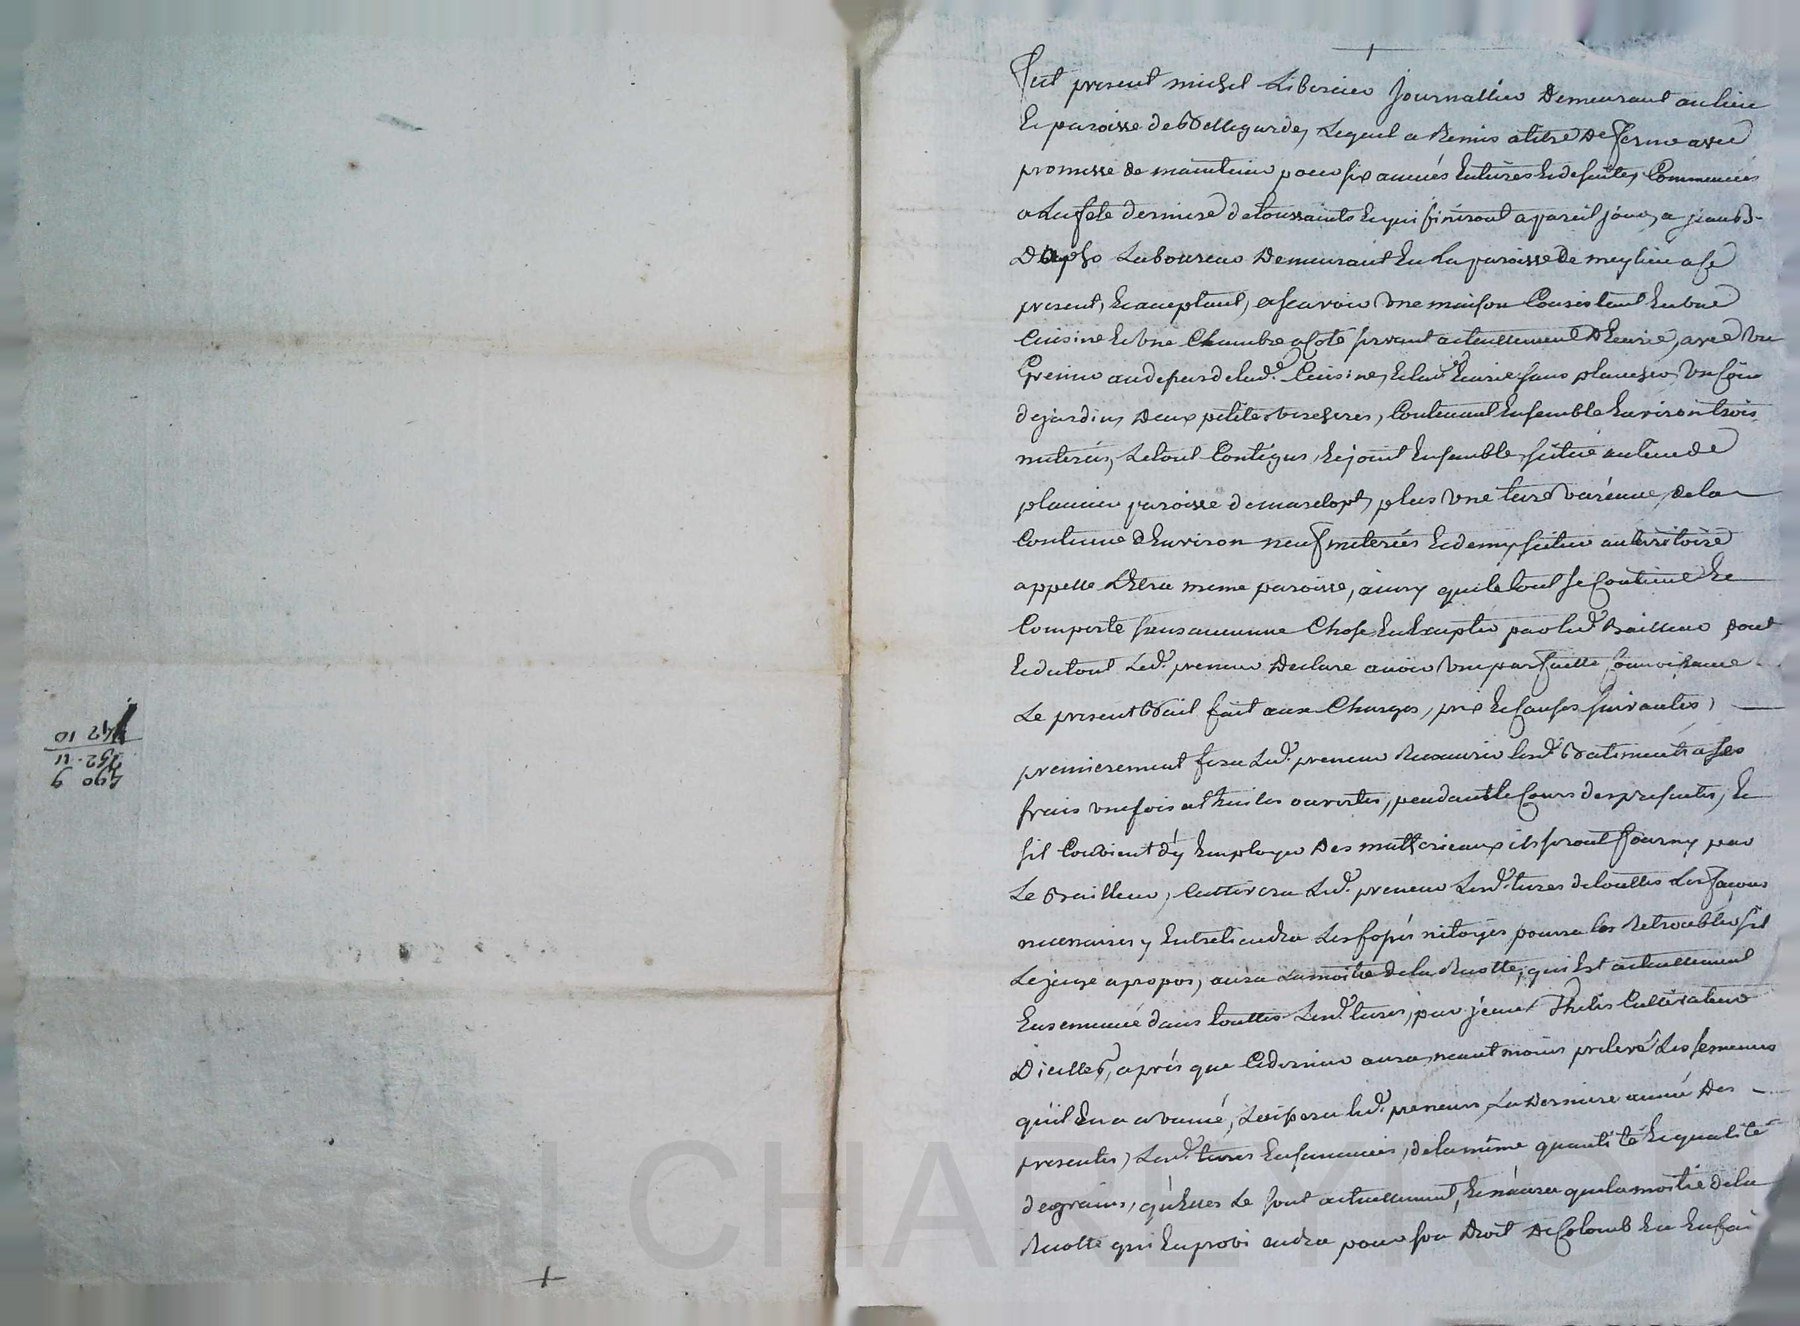 490 9
252. 11
742 10
Fut present michel Liberier Journallier Demeurant au lieu
Et paroisse de Bellegarde, Lequel a Remis a titre De ferme avec
promesse de maintenir pour six années Entieres Et de suite, Commencées
a La fete derniere de toussaints Et qui finiront a pareil jour, a jean B.
Laboureur Demeurant En La paroisse De meylieu a se
present, Et acceptant, asçavoir Une maison Consistant En Une
Cuisine Et Une Chambre a Coté servant actuellement D'Ecurie, avec Un
Grenier au dessus de lad.e Cuisine, Et lad.e Ecurie sans plancher, Un Coin
de jardin, Deux petites Contenant Ensemble Environ trois
meterées, Le tout Contigus, Et joint Ensemble, situé au lieu de
paroisse de marclopt, plus Une terre varenne, de la
Contenue d'Environ neuf meterées Et demy, située au territoire
appellé meme paroisse, ainsy que le tout se Contient Et
Comporte sans aucunne Chose En Excepter par led.t Bailleur dont
Et du tout Led.t preneur Declare avoir Une parfaitte Connoissance
Le present Bail fait aux Charges, prix Et Clauses suivantes,
premierement fera Led.t preneur Recouvrir lesd.ts Batiments a ses
frais une fois a thuiles ouvertes, pendant le Cours des presentes, Et
s'il Convient d'y Employer Des matteriaux ils seront fourny par
Le Bailleur, Cultivera Led.t preneur Lesd.tes terres de touttes Les façons
necessaires y Entretiendra Les fossés nétoyés pourra les Retroubler s'il
Le juge apropos, aura La moitié de la Recolte, qui Est actuellement
Ensemencé dans touttes Lesd.tes terres, par jean Thelis Cultivateur
D'icelles, après que Ce dernier aura neantmoins prelevé Les semences
qu'il En a avancé, Laissera led.t preneur, La Derniere année Des
presentes, Lesd.tes terres Ensemencées, de la même quantité Et qualité
de grains, qu'Elles Le sont actuellement, Et n'aura que la moitié de la
Recolte qui En proviendra pour son Droit De Colomb En En fai